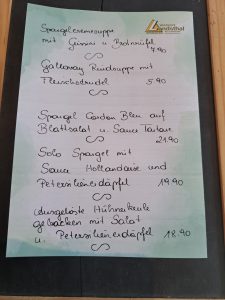 Spargelcremesuppe
mit Grissini u. Brotwürfel
4.90
Galloway Rindsuppe mit
Fleischstrudel 5.90
Spargel Cordon Bleu auf
Blattsalat u. Sauce Tartare
21.90
Solo Spargel mit
Sauce Hollandaise und
Petersilienerdäpfel 19.90
Ausgelöste Hühnerkeule
gebacken mit Salat
u. Petersilienerdäpfel 18.90